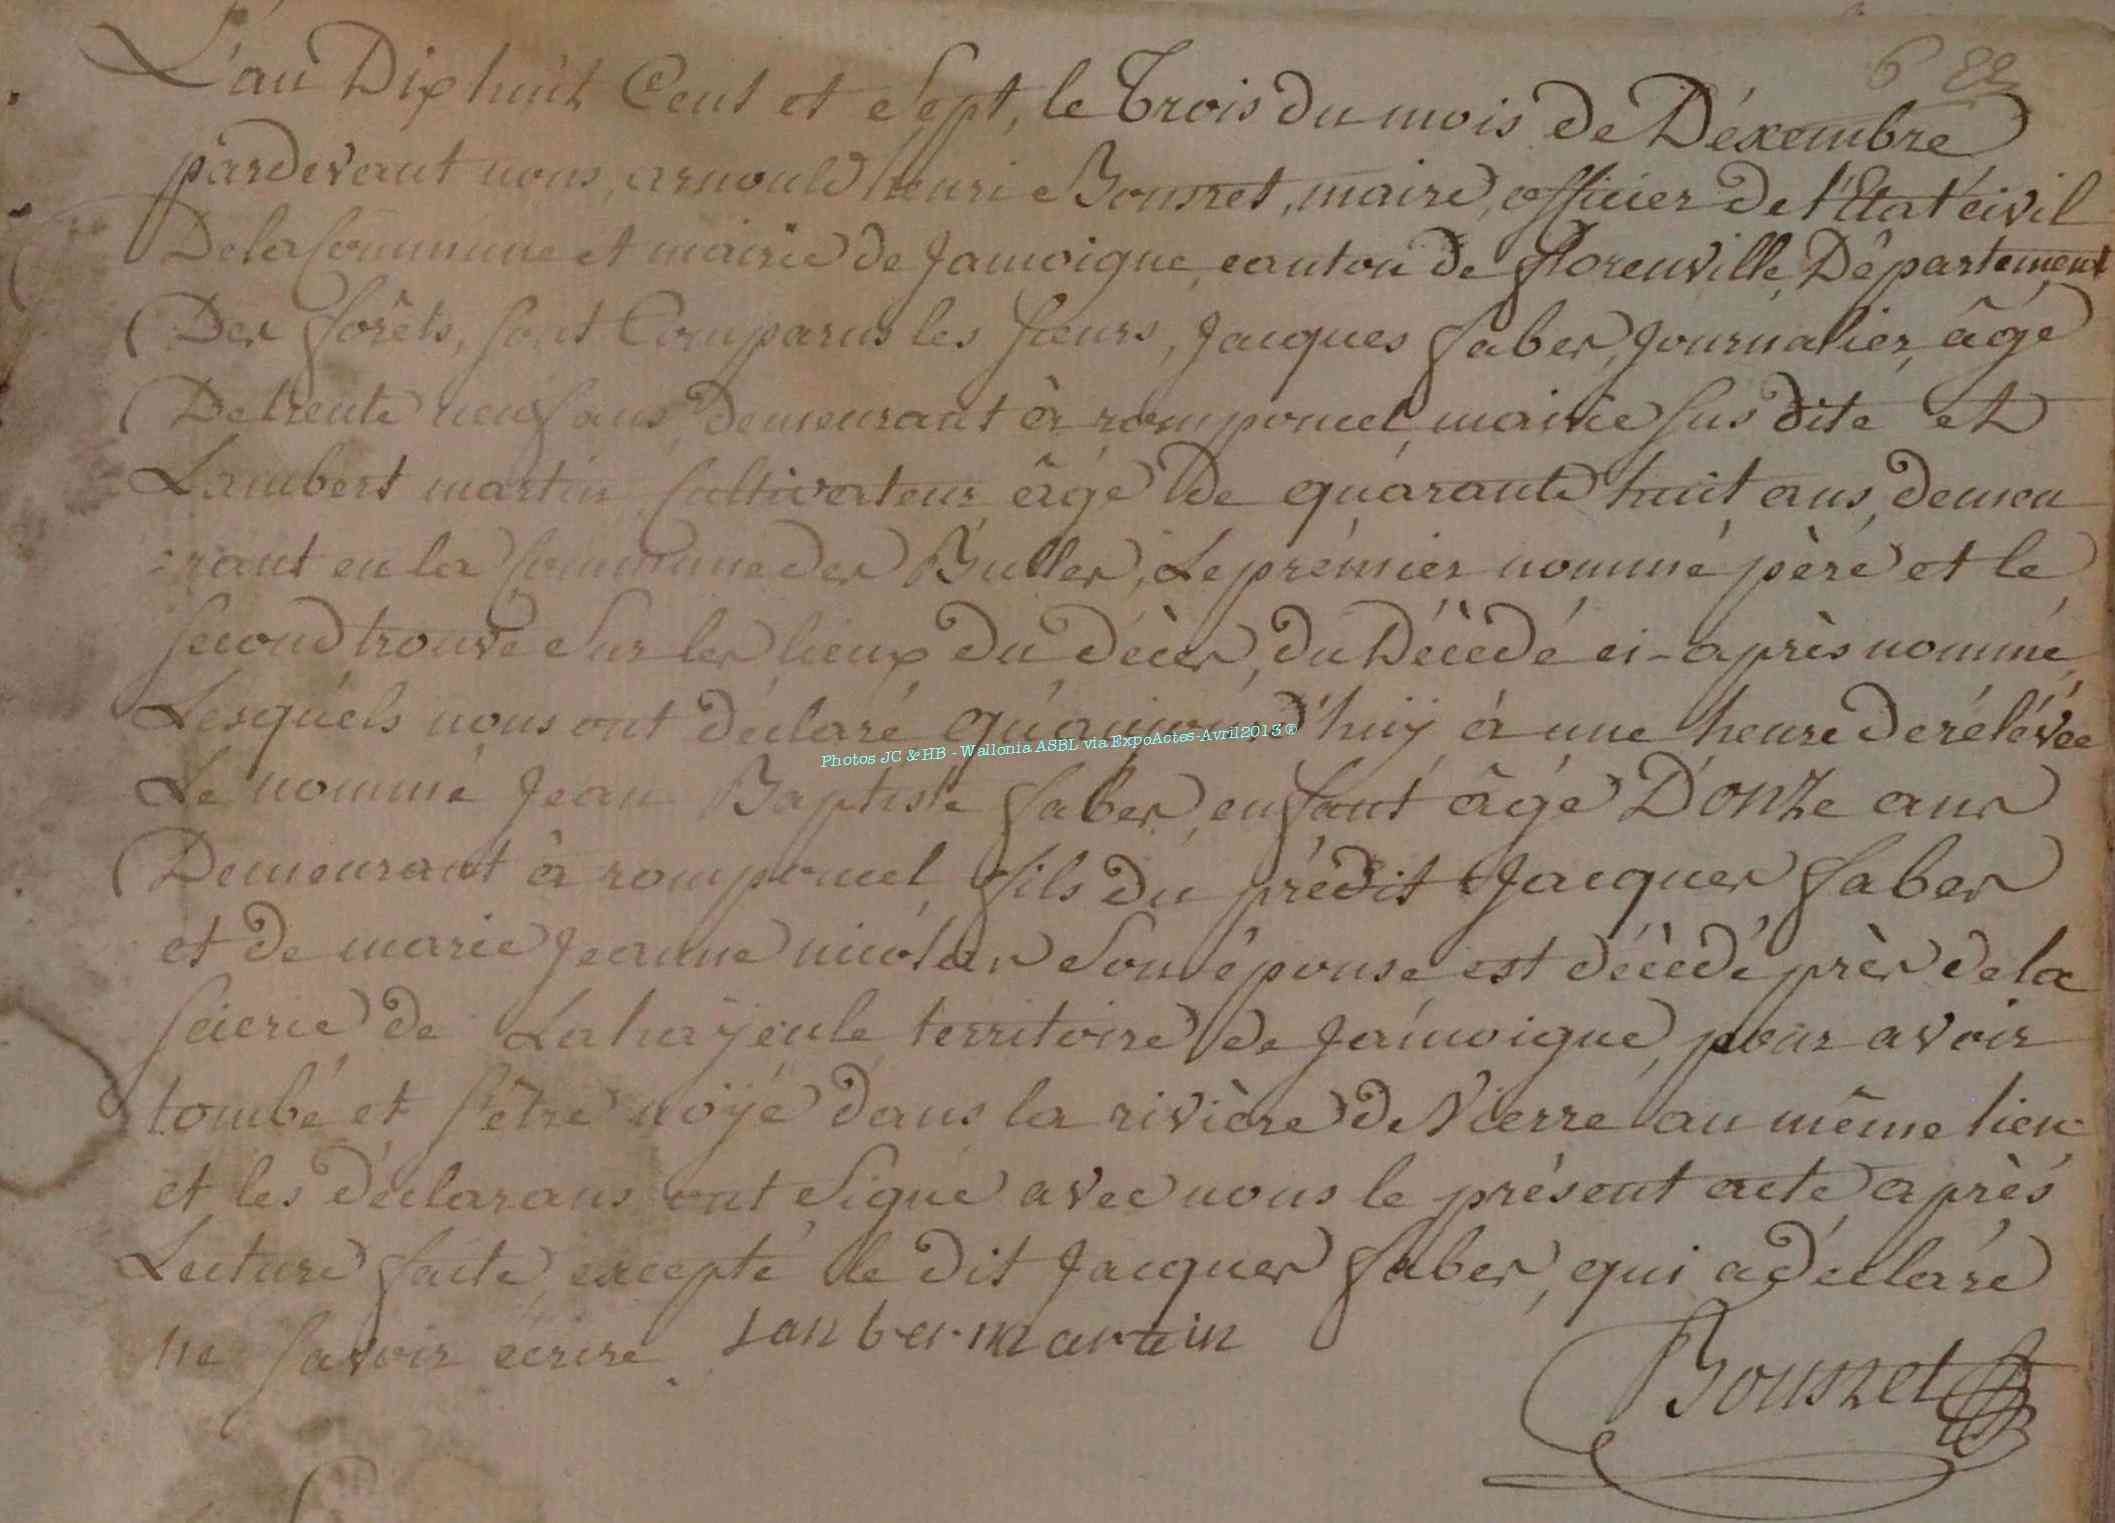 6 82
L'an Dix huit Cent et Sept, le Trois du mois de Déxembre
pardevant nous, arnould henri Bousret, maire, officier de l'Etat civil
De la Commune et mairie de Jamoigne, canton de florenville, Département
Des forêts, sont Comparus les sieurs, Jacques faber, Journalier, âgé
De trente neuf ans, demeurant à romponcel, mairie sus dite et
Lambert martin Cultivateur âgé de quarante huit ans, demeu
:rant en la Commune des Bulles, Le prémier nommé père et le
second trouvé sur les lieux du décès, du Décédé ci-après nommé,
Lesquels nous ont déclaré qu'aujourd'huÿ à une heure de rélévée
Le nommé Jean Baptiste faber, enfant âgé D'onze ans
Demeurant à romponcel, fils du prédit Jacques faber
et de marie Jeanne nicolas son épouse est décédé près de la
scierie de Lahaÿeule territoire de Jamoigne, pour avoir
tombé et s'être noÿé dans la rivière de Vierre au même lieu
et les déclarans ont signé avec nous le présent acte, après
Lecture faite, excepté le dit Jacques faber, qui a déclaré
ne savoir ecrire. Lanber martin
Bousret
Photos JC & HB - Wallonia ASBL via ExpoActes-Avril2013 ®